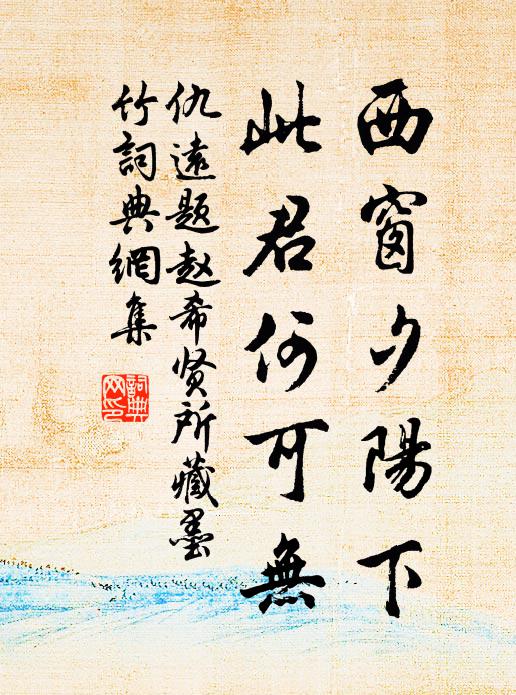 西窗夕陽下
此君何可無
仇遠題赵希贤所藏墨
竹詞典網集
詞典
网印